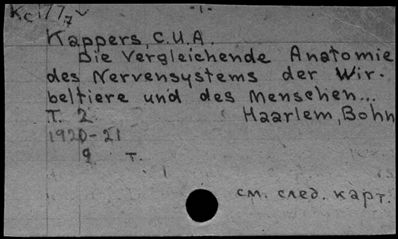 Kc 177/7 -1-
Kappers, C.U.A.
Die Vergleichende Anatomie
des Nervensystems der Wir-
beltiere und des Menschen...
T. 2 Haarlem, Bohn
1920-21
9 т.
см. след. карт.